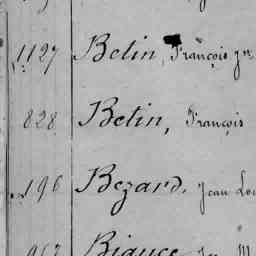 1127 Belin, François jne
828 Belin, François
196 Bezard, Jean Lou
967